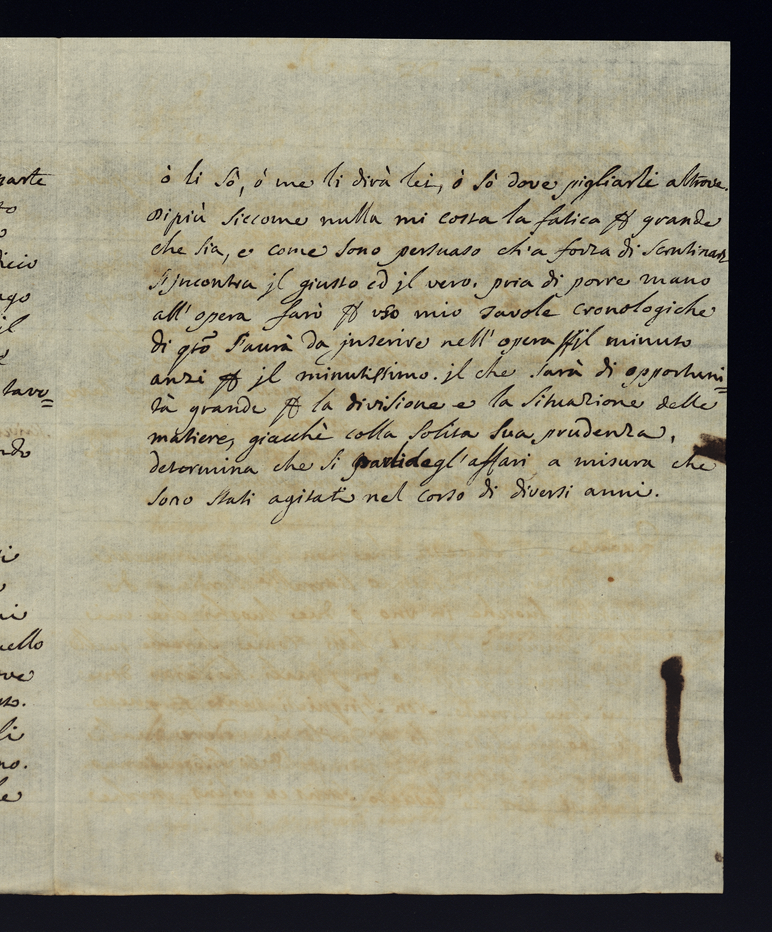 ò li sò, ò me li dirà lei, ò sò dove pigliarli altrove.
Dipiù siccome nulla mi costa la fatica ꝑ grande
che sia, e come sono persuaso ch'a forza di scrutinare
s'jncontra jl giusto ed jl vero. pria di porre mano
all'opera farò ꝑ uso mio Tavole cronologiche
di qto s'aurà da jnserire nell'opera ꝑ jl minuto
anzi ꝑ jl minutissimo. jl che sarà di opportuni=
tà grande ꝑ la divisione e la situazione delle
materie, giacchè colla solita sua prudenza,
determina che si parli degl'affari a misura che
sono stati agitati nel corso di diversi anni.